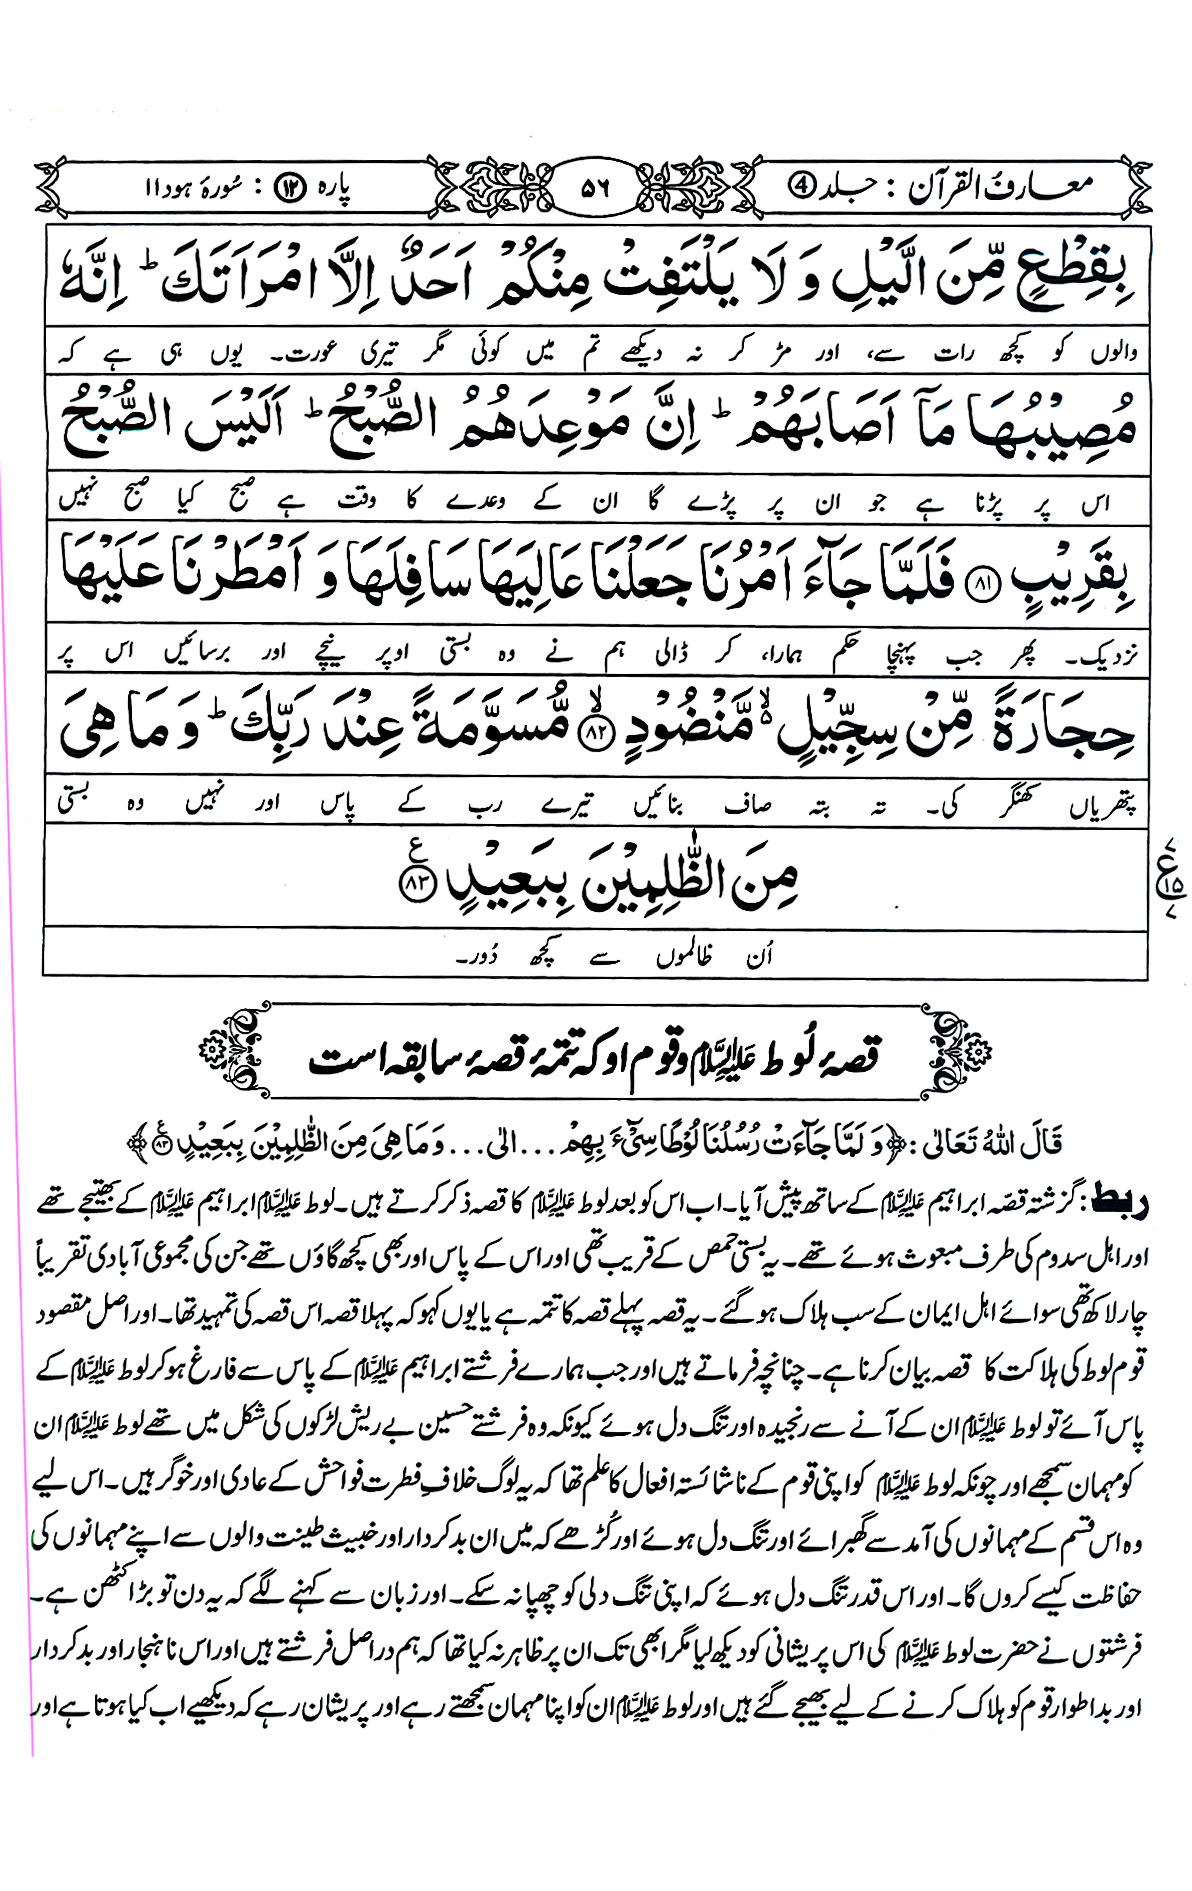 معارف القرآن : جلد ④
۵۶
پارہ ⑫ : سُورۂ ہود ۱۱
بِقِطْعٍ مِّنَ الَّيْلِ وَ لَا يَلْتَفِتْ مِنْكُمْ اَحَدٌ اِلَّا امْرَاَتَكَ ؕ اِنَّهٗ
والوں کو کچھ رات سے، اور مڑ کر نہ دیکھے تم میں کوئی مگر تیری عورت۔ یوں ہی ہے کہ
مُصِيْبُهَا مَآ اَصَابَهُمْ ؕ اِنَّ مَوْعِدَهُمُ الصُّبْحُ ؕ اَلَيْسَ الصُّبْحُ
اس پر پڑنا ہے جو ان پر پڑے گا ان کے وعدے کا وقت ہے صبح کیا صبح نہیں
بِقَرِيْبٍ ﴿۸۱﴾ فَلَمَّا جَآءَ اَمْرُنَا جَعَلْنَا عَالِيَهَا سَافِلَهَا وَ اَمْطَرْنَا عَلَيْهَا
نزدیک۔ پھر جب پہنچا حکم ہمارا، کر ڈالی ہم نے وہ بستی اوپر نیچے اور برسائیں اس پر
حِجَارَةً مِّنْ سِجِّيْلٍ ۙ۬ مَّنْضُوْدٍ ﴿ۙ۸۲﴾ مُّسَوَّمَةً عِنْدَ رَبِّكَ ؕ وَ مَا هِيَ
پتھریاں کھنگر کی۔ تہ بتہ صاف بنائیں تیرے رب کے پاس اور نہیں وہ بستی
مِنَ الظّٰلِمِيْنَ بِبَعِيْدٍ ﴿۸۳﴾ ع
ع ۱۵ ۷
اُن ظالموں سے کچھ دُور۔
قصۂ لُوط عَلَیْہِ السَّلَام وقوم او کہ تتمۂ قصۂ سابقہ است
قَالَ اللهُ تَعَالیٰ : ﴿وَ لَمَّا جَآءَتْ رُسُلُنَا لُوْطًا سِيْٓءَ بِهِمْ ... الیٰ ... وَ مَا هِيَ مِنَ الظّٰلِمِيْنَ بِبَعِيْدٍ ۸۳﴾
ربط : گزشتہ قصّہ ابراہیم علیہ السلام کے ساتھ پیش آیا۔ اب اس کو بعد لوط علیہ السلام کا قصہ ذکر کرتے ہیں۔ لوط علیہ السلام ابراہیم علیہ السلام کے بھتیجے تھے
اور اہل سدوم کی طرف مبعوث ہوئے تھے۔ یہ بستی حمص کے قریب تھی اور اس کے پاس اور بھی کچھ گاؤں تھے جن کی مجموعی آبادی تقریباً
چار لاکھ تھی سوائے اہل ایمان کے سب ہلاک ہو گئے۔ یہ قصہ پہلے قصہ کا تتمہ ہے یا یوں کہو کہ پہلا قصہ اس قصہ کی تمہید تھا۔ اور اصل مقصود
قوم لوط کی ہلاکت کا قصہ بیان کرنا ہے۔ چنانچہ فرماتے ہیں اور جب ہمارے فرشتے ابراہیم علیہ السلام کے پاس سے فارغ ہو کر لوط علیہ السلام کے
پاس آئے تو لوط علیہ السلام ان کے آنے سے رنجیدہ اور تنگ دل ہوئے کیونکہ وہ فرشتے حسین بے ریش لڑکوں کی شکل میں تھے لوط علیہ السلام ان
کو مہمان سمجھے اور چونکہ لوط علیہ السلام کو اپنی قوم کے ناشائستہ افعال کا علم تھا کہ یہ لوگ خلافِ فطرت فواحش کے عادی اور خوگر ہیں۔ اس لیے
وہ اس قسم کے مہمانوں کی آمد سے گھبرائے اور تنگ دل ہوئے اور کُڑھے کہ میں ان بدکردار اور خبیث طینت والوں سے اپنے مہمانوں کی
حفاظت کیسے کروں گا۔ اور اس قدر تنگ دل ہوئے کہ اپنی تنگ دلی کو چھپا نہ سکے۔ اور زبان سے کہنے لگے کہ یہ دن تو بڑا کٹھن ہے۔
فرشتوں نے حضرت لوط علیہ السلام کی اس پریشانی کو دیکھ لیا مگر ابھی تک ان پر ظاہر نہ کیا تھا کہ ہم دراصل فرشتے ہیں اور اس ناہنجار اور بدکردار
اور بداطوار قوم کو ہلاک کرنے کے لیے بھیجے گئے ہیں اور لوط علیہ السلام ان کو اپنا مہمان سمجھتے رہے اور پریشان رہے کہ دیکھیے اب کیا ہوتا ہے اور